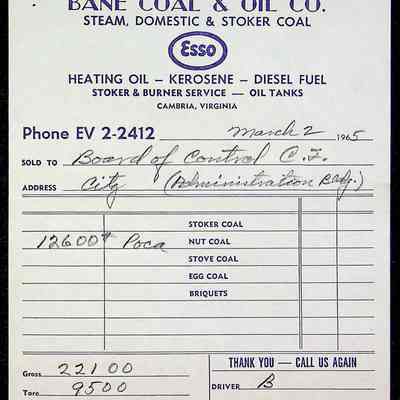 BANE COAL & OIL CO.
STEAM, DOMESTIC & STOKER COAL
Esso
HEATING OIL — KEROSENE — DIESEL FUEL
STOKER & BURNER SERVICE — OIL TANKS
CAMBRIA, VIRGINIA
Phone EV 2-2412 March 2 1965
SOLD TO Board of Control C.F.
ADDRESS City (Administration Bldg.)
STOKER COAL
12600# Poca NUT COAL
STOVE COAL
EGG COAL
BRIQUETS
Gross 22100 THANK YOU — CALL US AGAIN
Tare 9500 DRIVER B